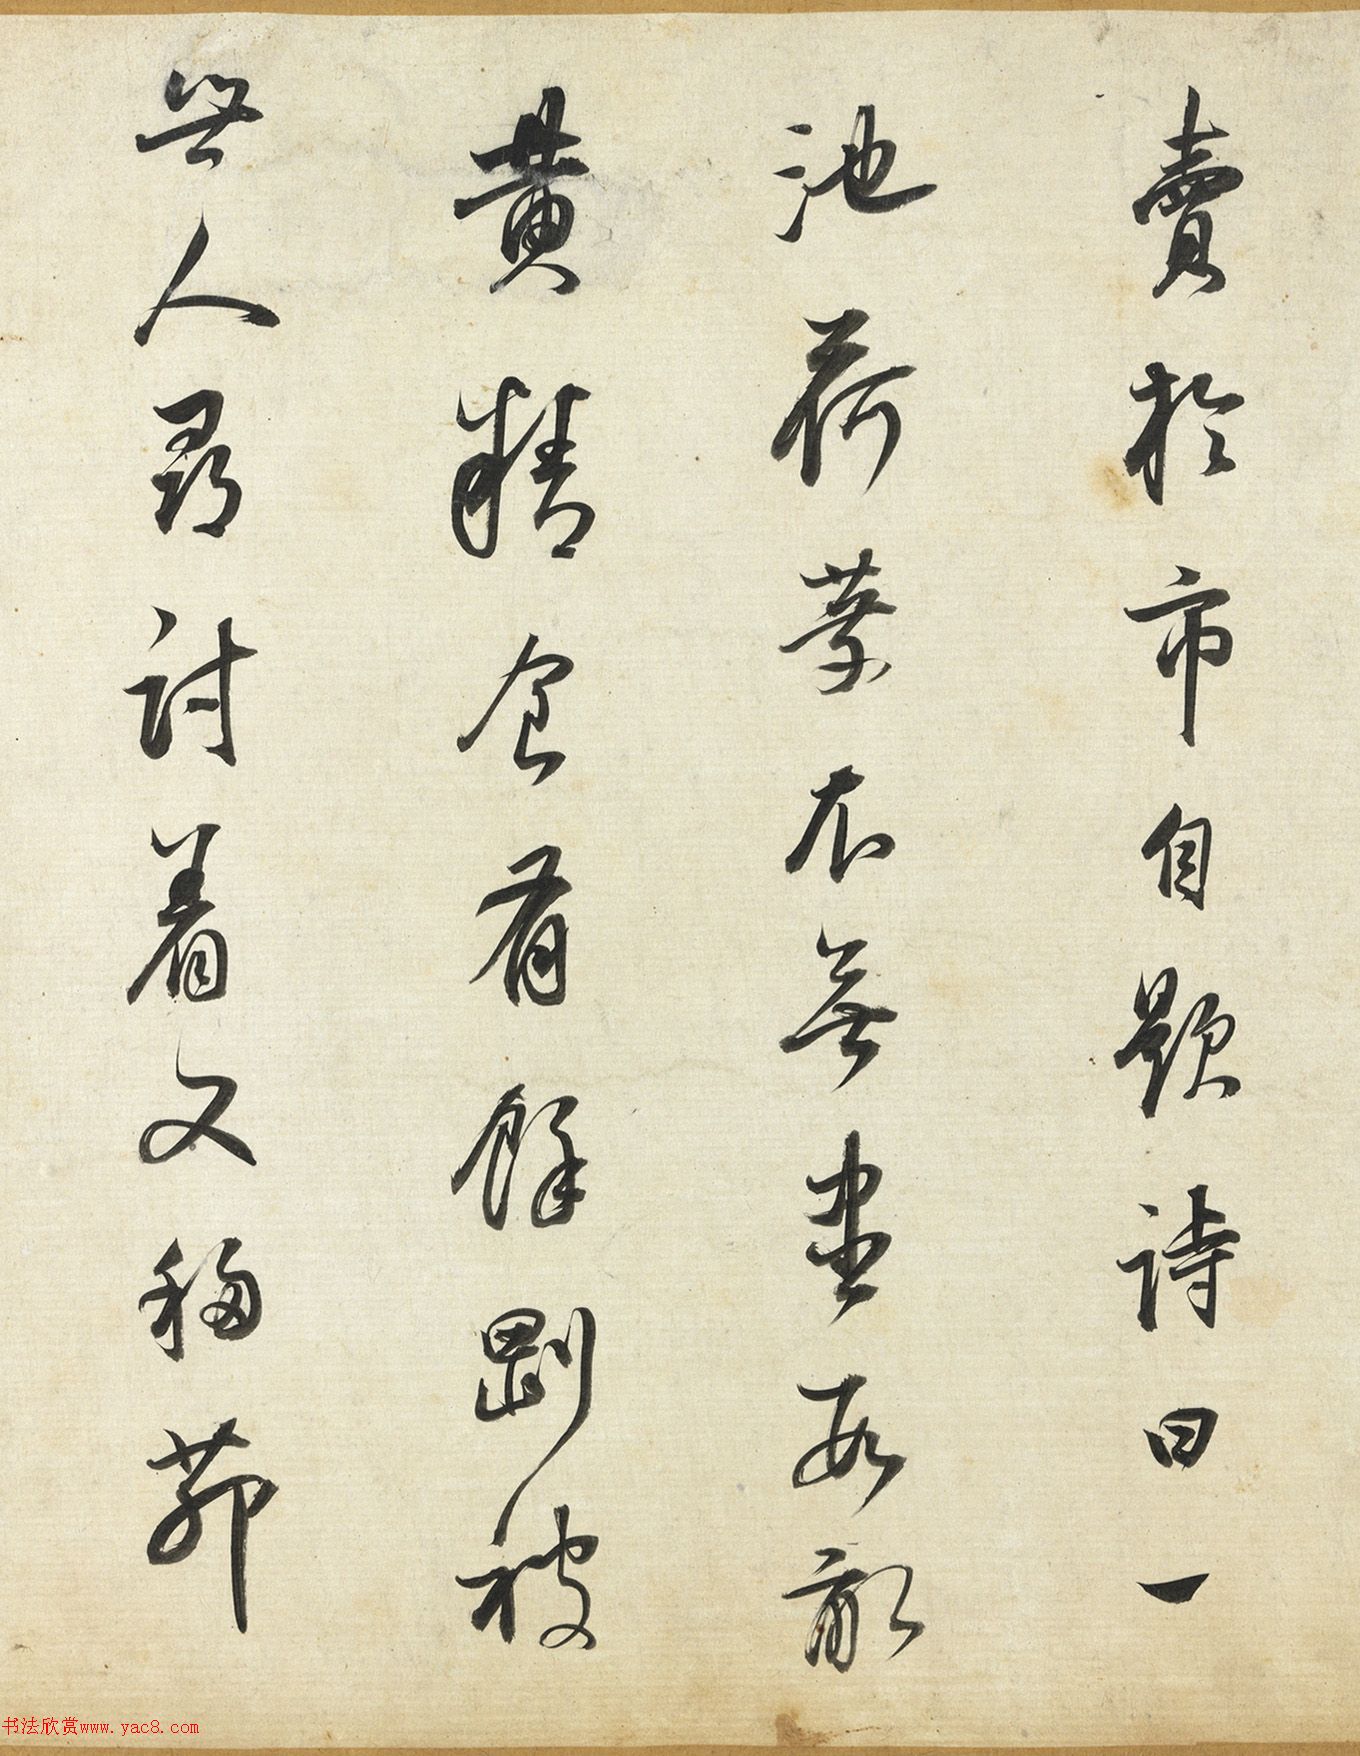 賣於市自題詩曰一
池荷葉衣無盡數畝
黄精食有餘剛被
世人尋討着又移茅
书法欣赏www.yac8.com